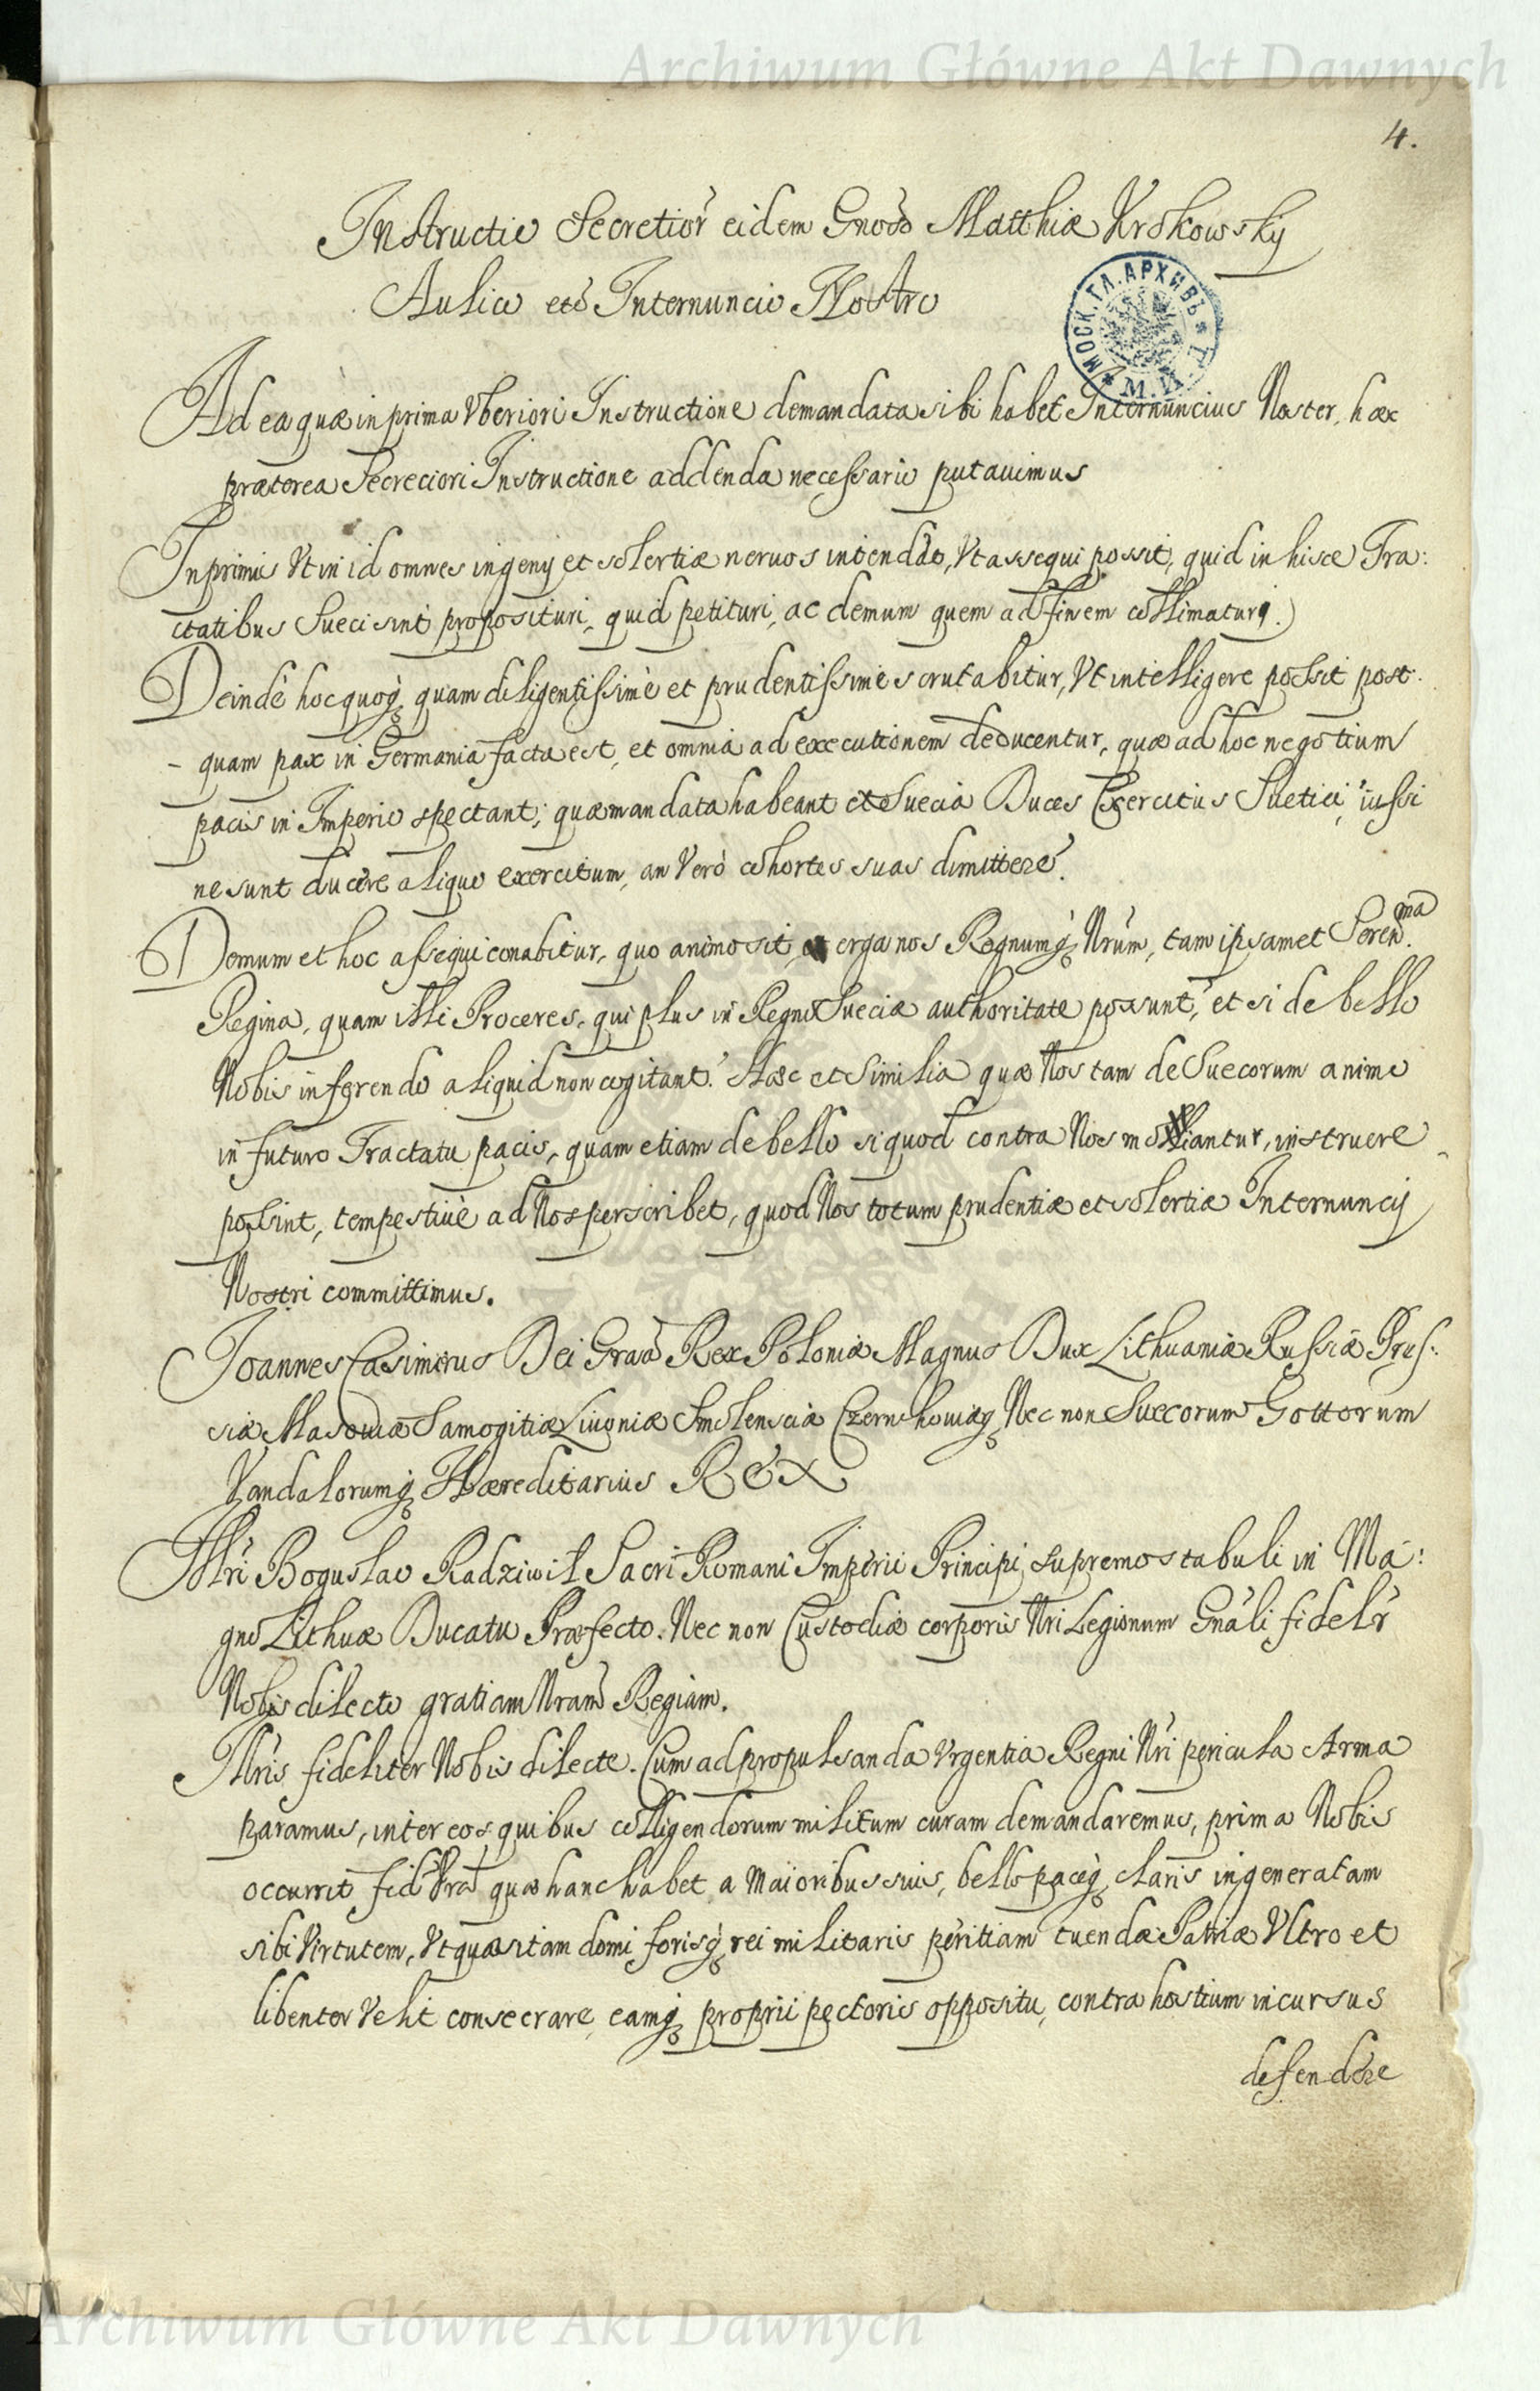 Archiwum Główne Akt Dawnych
4.
Instructio Secretior eidem Gnoso Matthiæ Krokowsky
Aulico etc Internuncio Nostro
МОСК. ГЛ. АРХИВЪ
М.И.Д.
Ad ea quæ in prima Vberiori Instructione demandata sibi habet Internuncius Noster, hæc
præterea Secreciori Instructione addenda necessario putauimus
Inprimis Vt in id omnes ingenij et solertiæ neruos intendat, Vt assequi possit, quid in hisce Tra:
ctatibus Sueci sint proposituri, quid petituri, ac demum quem ad finem collimaturi.
Deindè hoc quoq; quam diligentissimè et prudentissimè scrutabitur, Vt intelligere possit post
- quam pax in Germania facta est, et omnia ad executionem deducentur, quæ ad hoc negotium
pacis in Imperio spectant; quæ mandata habeant ex Suecia Duces Exercitus Suetici, iussi
ne sunt ducere aliquo exercitum, an Verò cohortes suas dimittere.
Demum et hoc assequi conabitur, quo animo sit erga nos Regnumq; Nrum, tam ipsamet Seren.ma
Regina, quam illi Proceres, qui plus in Regno Sueciæ authoritate possunt, et si de bello
Nobis inferendo aliquid non cogitant. Hæc et Similia quæ Nos tam de Suecorum animo
in futuro Tractatu pacis, quam etiam de bello si quod contra Nos moliantur, instruere
possint, tempestiuè ad Nos perscribet, quod Nos totum prudentiæ et solertiæ Internuncij
Nostri committimus.
Joannes Casimirus Dei Graa Rex Poloniæ Magnus Dux Lithuaniæ Russiæ Prus:
siæ Masouiæ Samogitiæ Liuoniæ Smolensciæ Czernihouiæq; Nec non Suecorum Gottorum
Vandalorumq; Hæreditarius REX
Illri Boguslao Radziwił Sacri Romani Imperii Principi, supremo stabuli in Ma:
gno Lithuæ Ducatu Præfecto. Nec non Custodiæ corporis Nri Legionum Gnali fideli
Nobis dilecto gratiam Nram Regiam.
Illris fideliter Nobis dilecte. Cum ad propulsanda Vrgentia Regni Nri pericula Arma
paramus, inter eos quibus colligendorum militum curam demandaremus, prima Nobis
occurrit fid Vra quæ hanc habet a Maioribus suis, bello paceq; claris ingeneratam
sibi Virtutem, Vt quæsitam domi forisq; rei militaris peritiam tuendæ Patriæ Vltro et
libenter Velit consecrare, eamq; proprii pectoris oppositu, contra hostium incursus
defendere
Archiwum Główne Akt Dawnych